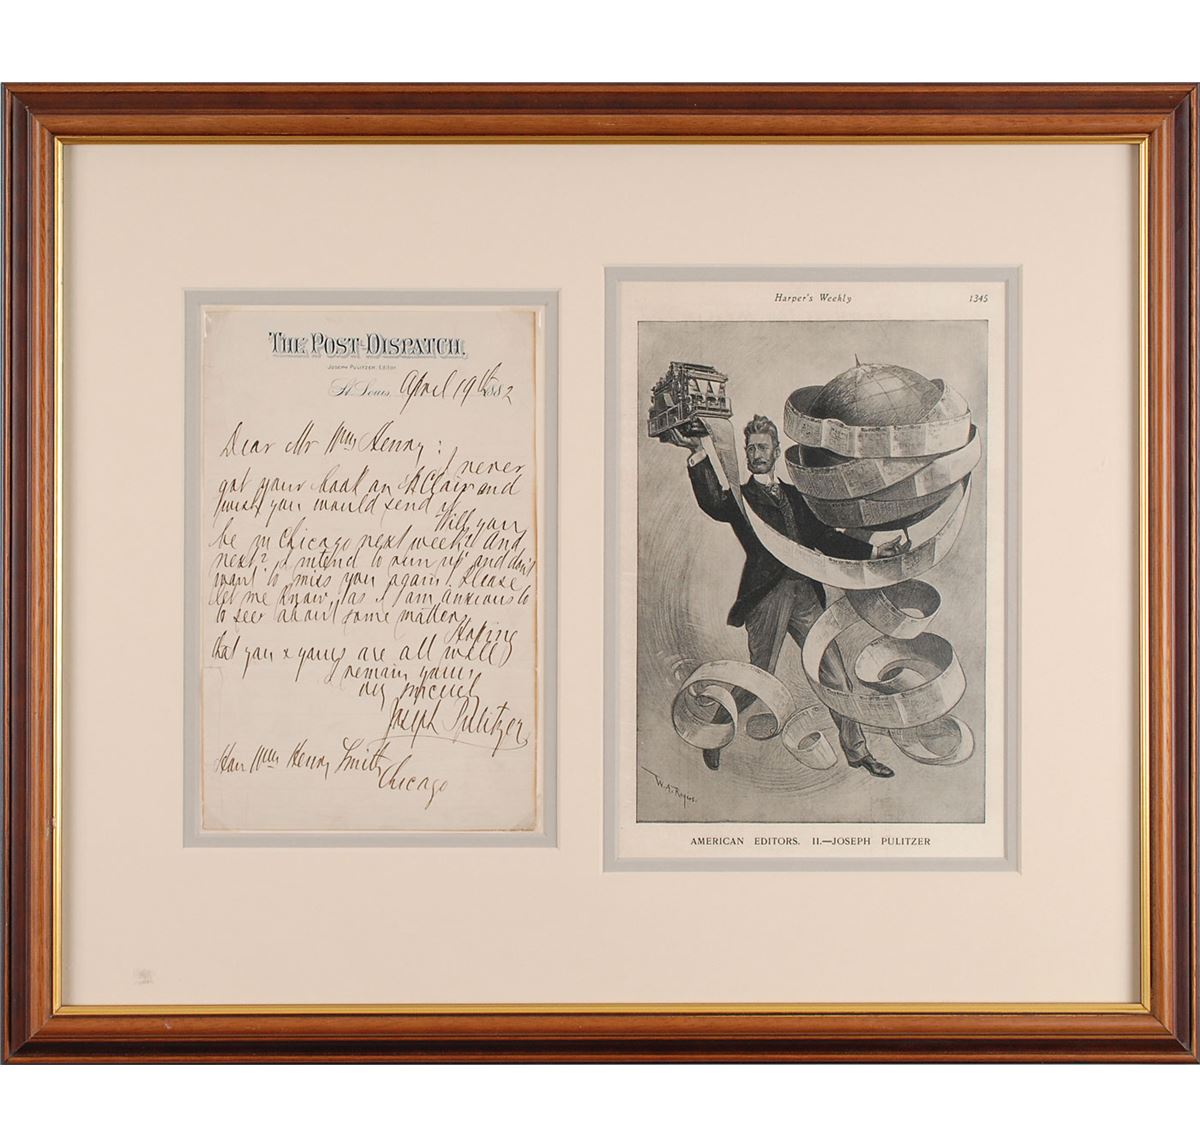 THE POST-DISPATCH.
JOSEPH PULITZER, Editor
St. Louis, April 19th 1882
Dear Mr Wm Henry: I never
got your book on St Clair and
wish you would send it.
Will you
be in Chicago next week? And
next? I intend to run up and don't
want to miss you again. Please
let me know, as I am anxious to
to see about some matters.
Hoping
that you & yours are all well,
I remain yours
very sincerely
Joseph Pulitzer
Hon Wm Henry Smith
Chicago
Harper's Weekly
1345
W. A. Rogers.
AMERICAN EDITORS. II.—JOSEPH PULITZER